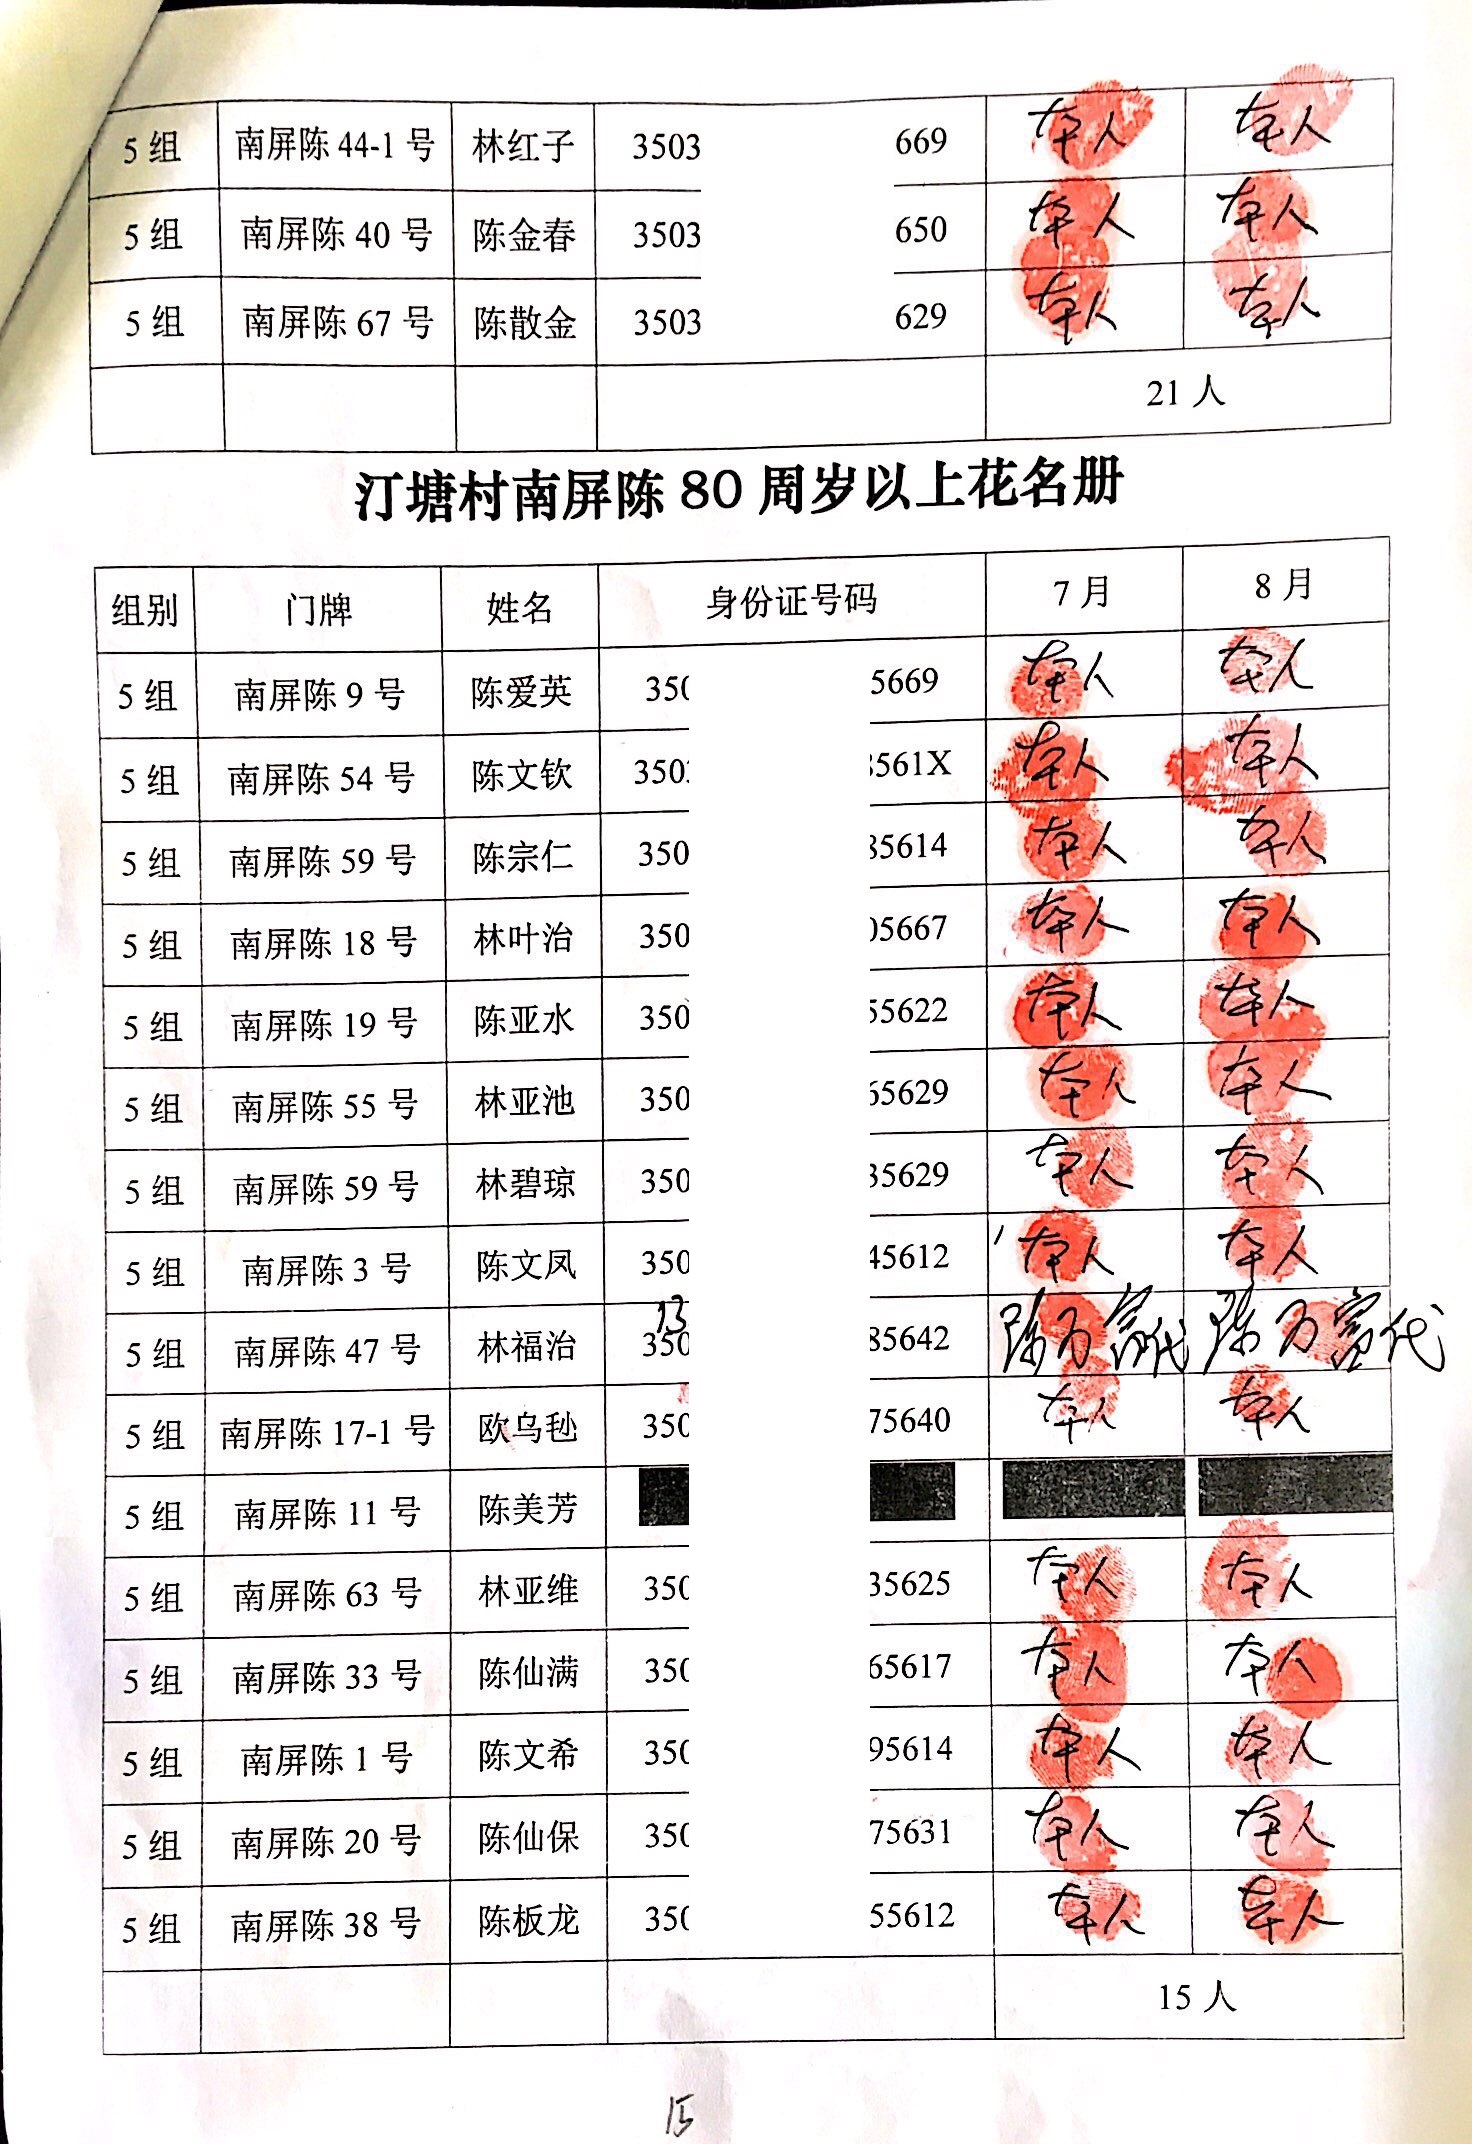 5 组 南屏陈 44-1 号 林红子 3503 669 本人 本人
5 组 南屏陈 40 号 陈金春 3503 650 本人 本人
5 组 南屏陈 67 号 陈散金 3503 629 本人 本人
21 人
汀塘村南屏陈 80 周岁以上花名册
组别 门牌 姓名 身份证号码 7 月 8 月
5 组 南屏陈 9 号 陈爱英 350 5669 本人 本人
5 组 南屏陈 54 号 陈文钦 3503 3561X 本人 本人
5 组 南屏陈 59 号 陈宗仁 350 35614 本人 本人
5 组 南屏陈 18 号 林叶治 350 05667 本人 本人
5 组 南屏陈 19 号 陈亚水 350 55622 本人 本人
5 组 南屏陈 55 号 林亚池 350 65629 本人 本人
5 组 南屏陈 59 号 林碧琼 350 35629 本人 本人
5 组 南屏陈 3 号 陈文凤 350 45612 本人 本人
13
5 组 南屏陈 47 号 林福治 350 85642 陈万富代 陈万富代
5 组 南屏陈 17-1 号 欧乌毡 350 75640 本人 本人
5 组 南屏陈 11 号 陈美芳
5 组 南屏陈 63 号 林亚维 350 35625 本人 本人
5 组 南屏陈 33 号 陈仙满 350 65617 本人 本人
5 组 南屏陈 1 号 陈文希 350 95614 本人 本人
5 组 南屏陈 20 号 陈仙保 350 75631 本人 本人
5 组 南屏陈 38 号 陈板龙 350 55612 本人 本人
15 人
15